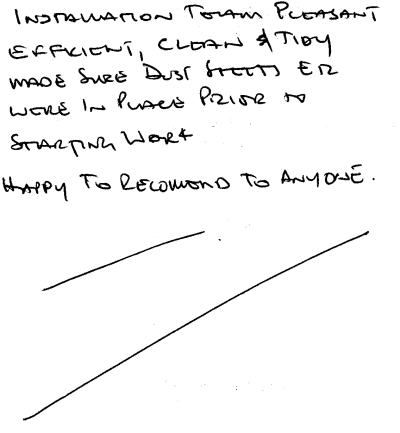 INSTALLATION TEAM PLEASANT
EFFICIENT, CLEAN & TIDY
MADE SURE DUST SHEETS ETC
WERE IN PLACE PRIOR TO
STARTING WORK
HAPPY TO RECOMMEND TO ANYONE.